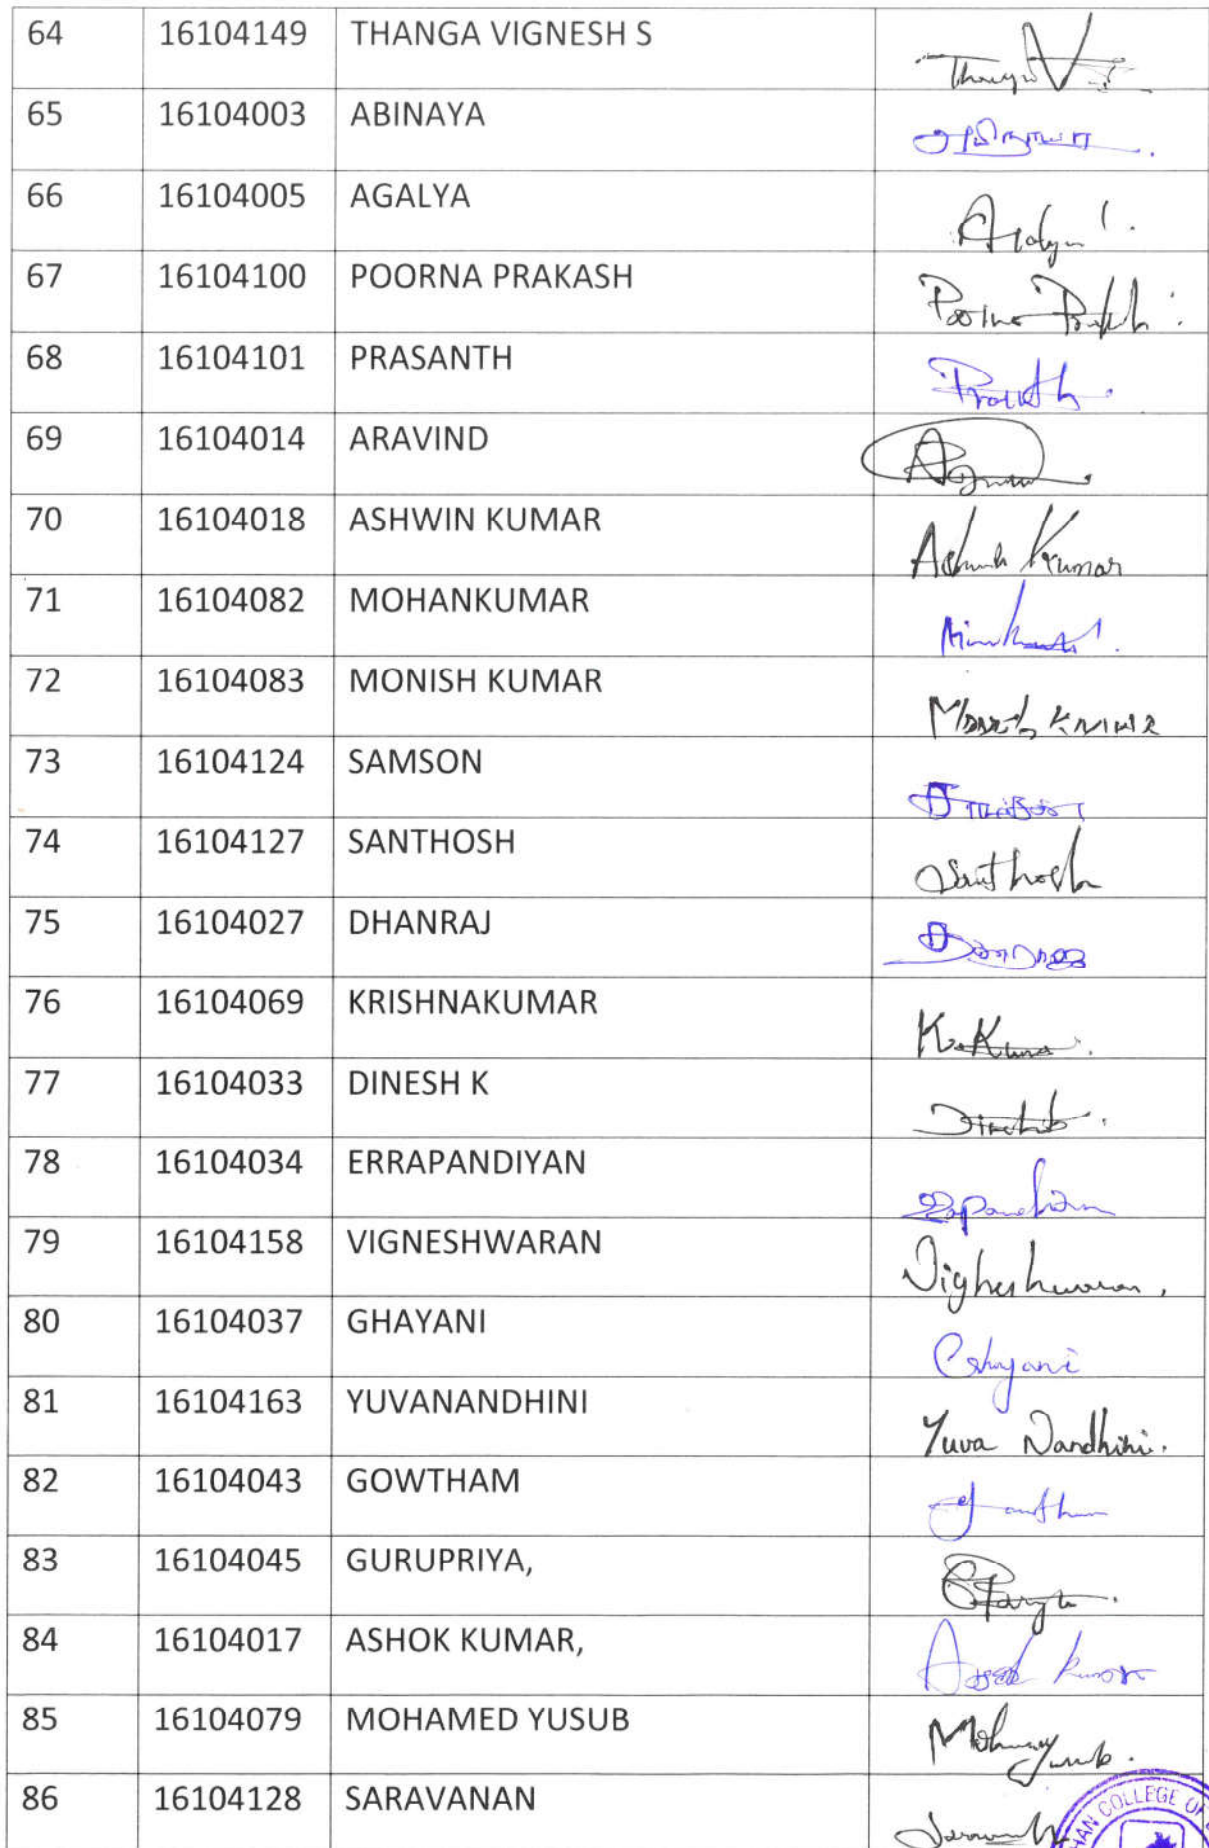 64 16104149 THANGA VIGNESH S Thanga V
65 16104003 ABINAYA அபிநயா.
66 16104005 AGALYA Agalya
67 16104100 POORNA PRAKASH Poorna Prakash
68 16104101 PRASANTH
69 16104014 ARAVIND
70 16104018 ASHWIN KUMAR Kumar
71 16104082 MOHANKUMAR
72 16104083 MONISH KUMAR
73 16104124 SAMSON
74 16104127 SANTHOSH Santhosh
75 16104027 DHANRAJ
76 16104069 KRISHNAKUMAR
77 16104033 DINESH K
78 16104034 ERRAPANDIYAN
79 16104158 VIGNESHWARAN Vigneshwaran,
80 16104037 GHAYANI Ghayani
81 16104163 YUVANANDHINI Yuva Nandhini.
82 16104043 GOWTHAM
83 16104045 GURUPRIYA,
84 16104017 ASHOK KUMAR, Kumar
85 16104079 MOHAMED YUSUB
86 16104128 SARAVANAN
COLLEGE